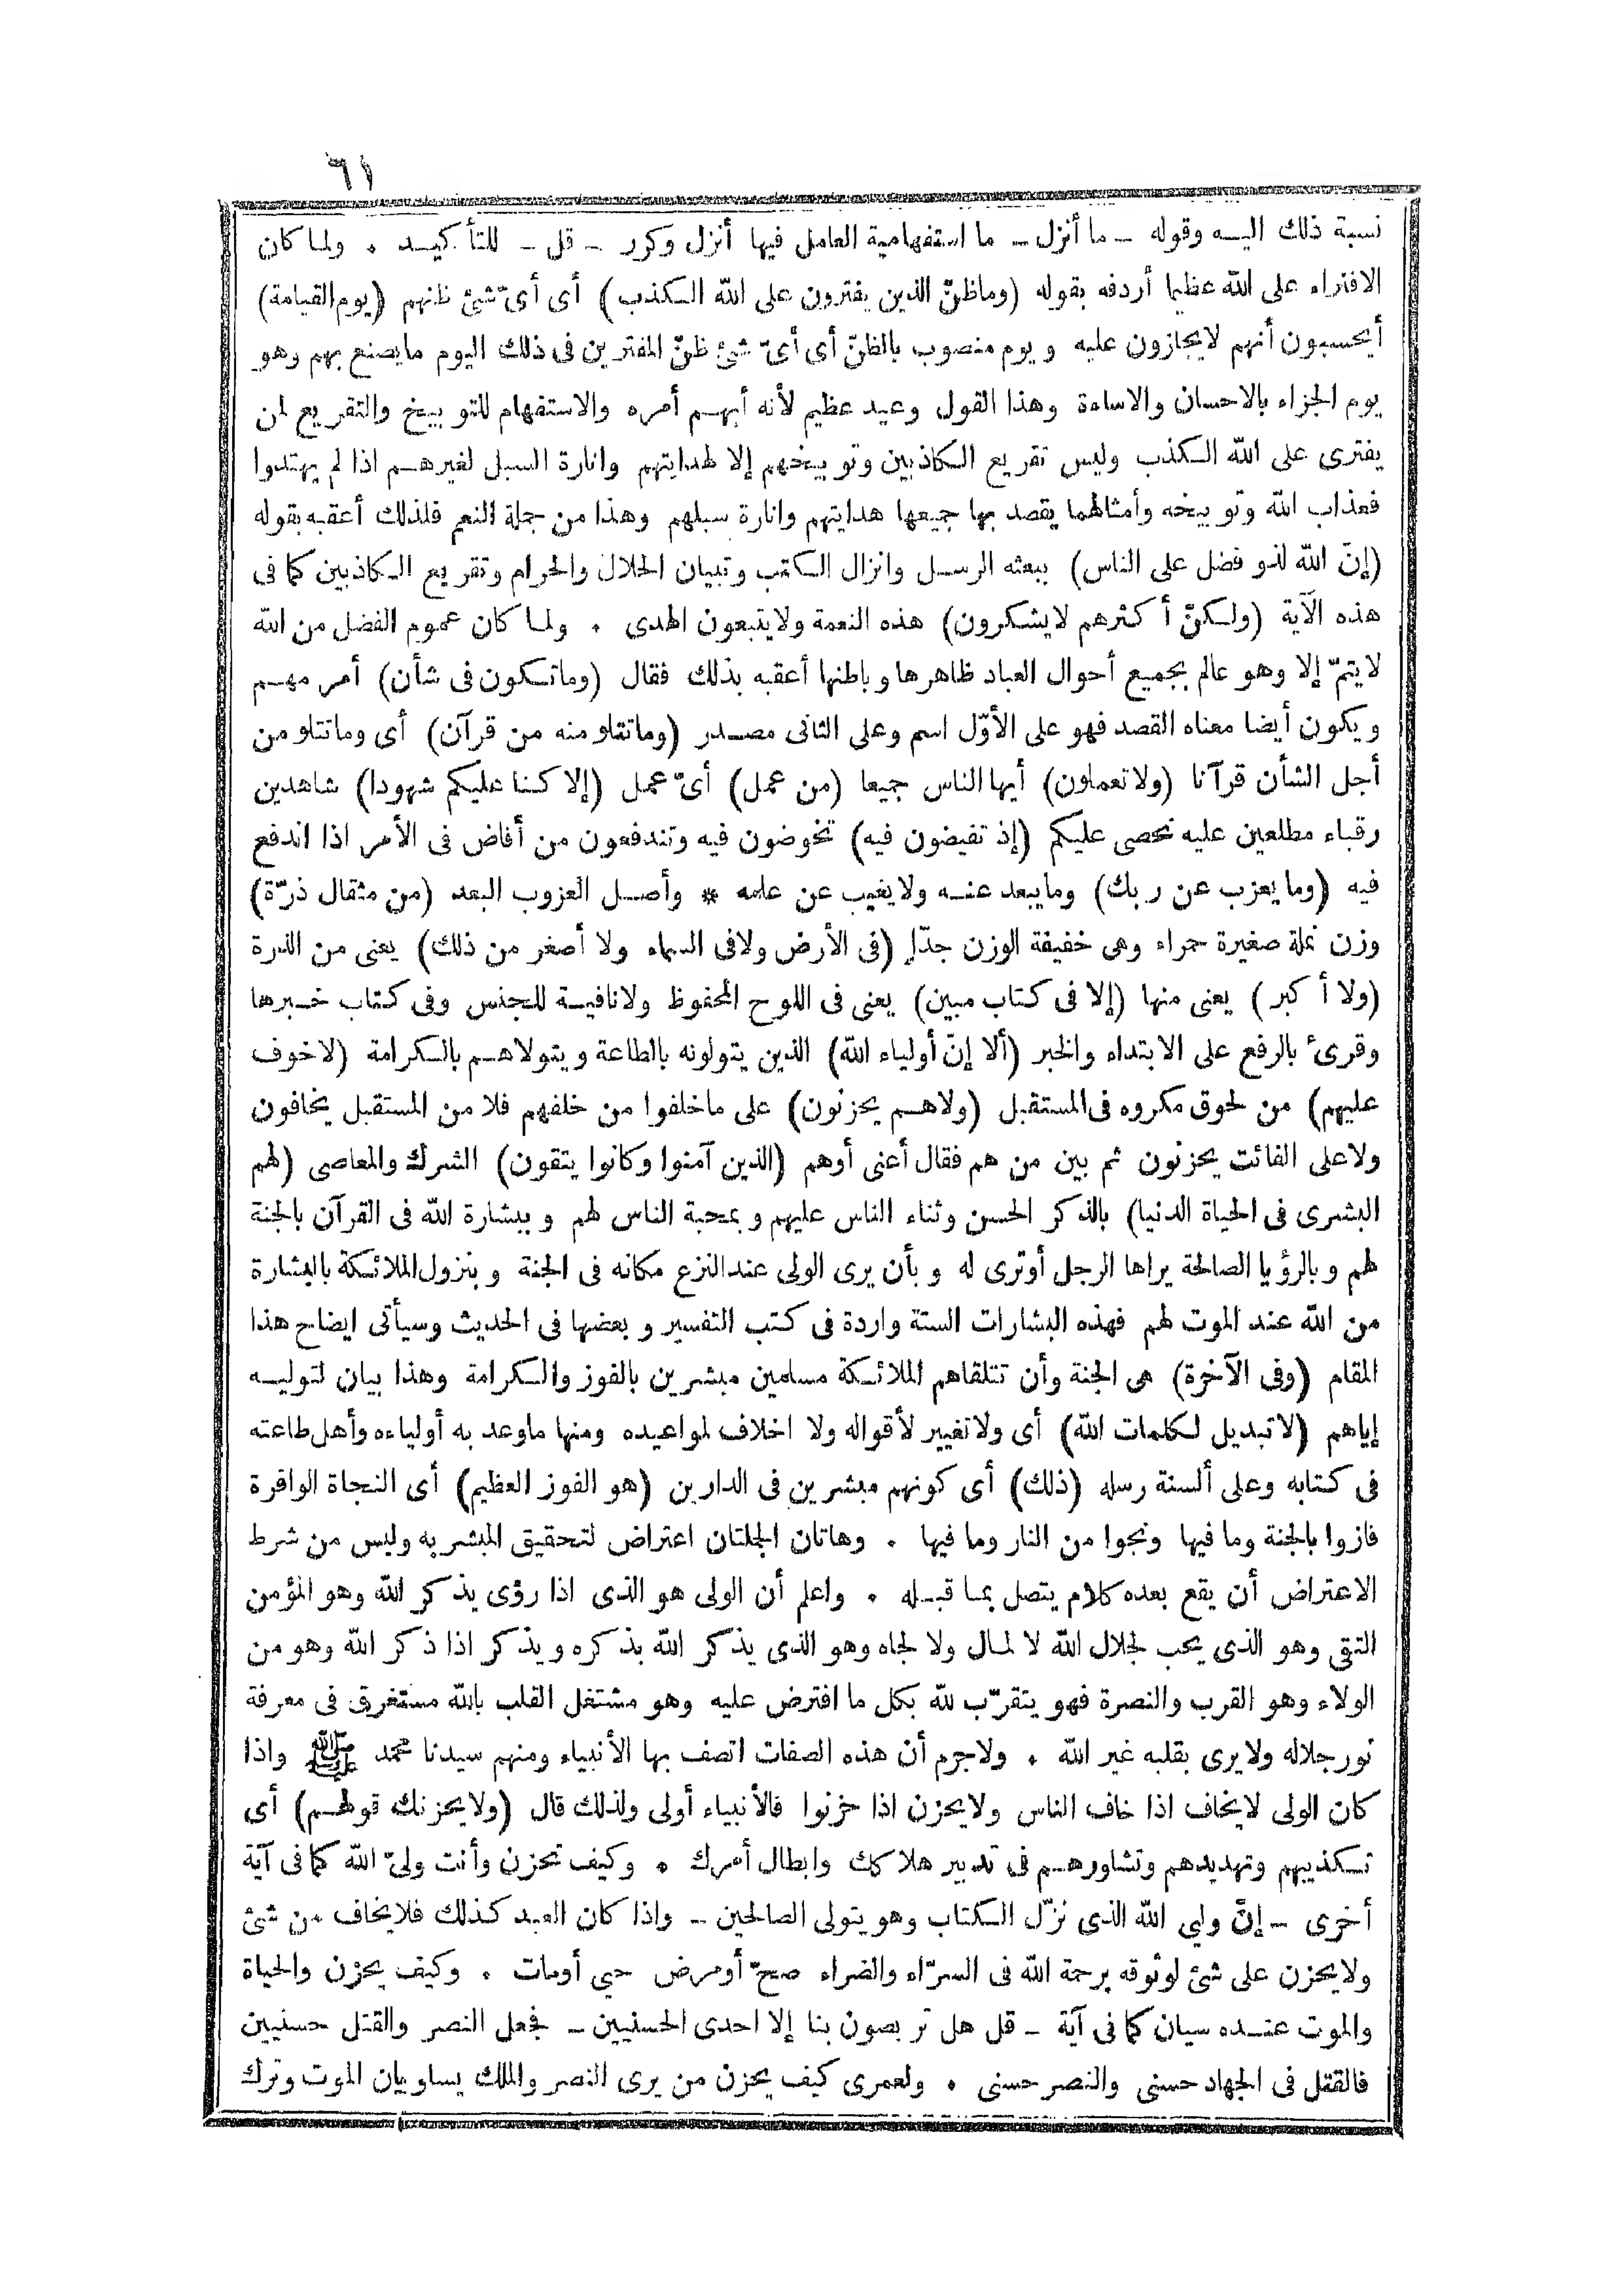 ٦١
نسبة ذلك اليه وقوله ـ ما أنزل ـ ما استفهامية العامل فيها أنزل وكرر ـ قل ـ للتأكيد . ولما كان
الافتراء على الله عظيما أردفه بقوله (وماظنّ الذين يفترون على الله الكذب) أى أىّ شئ ظنهم (يوم القيامة)
أيحسبون أنهم لايجازون عليه ويوم منصوب بالظنّ أى أىّ شئ ظنّ المفترين فى ذلك اليوم مايصنع بهم وهو
يوم الجزاء بالاحسان والاساءة وهذا القول وعيد عظيم لأنه أبهم أمره والاستفهام للتوبيخ والتقريع لمن
يفترى على الله الكذب وليس تقريع الكاذبين وتوبيخهم إلا لهدايتهم وانارة السبل لغيرهم اذا لم يهتدوا
فعذاب الله وتوبيخه وأمثالهما يقصد بها جميعها هدايتهم وانارة سبلهم وهذا من جملة النعم فلذلك أعقبه بقوله
(إنّ الله لذو فضل على الناس) ببعثه الرسل وانزال الكتب وتبيان الحلال والحرام وتقريع الكاذبين كما فى
هذه الآية (ولكنّ أكثرهم لايشكرون) هذه النعمة ولايتبعون الهدى . ولما كان عموم الفضل من الله
لايتمّ إلا وهو عالم بجميع أحوال العباد ظاهرها وباطنها أعقبه بذلك فقال (وماتكون فى شأن) أمر مهم
ويكون أيضا معناه القصد فهو على الأوّل اسم وعلى الثانى مصدر (وماتتلو منه من قرآن) أى وماتتلو من
أجل الشأن قرآنا (ولاتعملون) أيها الناس جميعا (من عمل) أىّ عمل (إلا كنا عليكم شهودا) شاهدين
رقباء مطلعين عليه نحصى عليكم (إذ تفيضون فيه) تخوضون فيه وتندفعون من أفاض فى الأمر اذا اندفع
فيه (ومايعزب عن ربك) ومايبعد عنه ولايغيب عن علمه * وأصل العزوب البعد (من مثقال ذرّة)
وزن نملة صغيرة حمراء وهى خفيفة الوزن جدّا (فى الأرض ولافى السماء ولا أصغر من ذلك) يعنى من الذرة
(ولا أكبر) يعنى منها (إلا فى كتاب مبين) يعنى فى اللوح المحفوظ ولانافية للجنس وفى كتاب خبرها
وقرئ بالرفع على الابتداء والخبر (ألا إنّ أولياء الله) الذين يتولونه بالطاعة ويتولاهم بالكرامة (لاخوف
عليهم) من لحوق مكروه فى المستقبل (ولاهم يحزنون) على ماخلفوا من خلفهم فلا من المستقبل يخافون
ولاعلى الفائت يحزنون ثم بين من هم فقال أعنى أوهم (الذين آمنوا وكانوا يتقون) الشرك والمعاصى (لهم
البشرى فى الحياة الدنيا) بالذكر الحسن وثناء الناس عليهم وبمحبة الناس لهم وببشارة الله فى القرآن بالجنة
لهم وبالرؤيا الصالحة يراها الرجل أوترى له وبأن يرى الولى عند النزع مكانه فى الجنة وبنزول الملائكة بالبشارة
من الله عند الموت لهم فهذه البشارات الستة واردة فى كتب التفسير وبعضها فى الحديث وسيأتى ايضاح هذا
المقام (وفى الآخرة) هى الجنة وأن تتلقاهم الملائكة مسلمين مبشرين بالفوز والكرامة وهذا بيان لتوليه
إياهم (لاتبديل لكلمات الله) أى ولاتغيير لأقواله ولا اخلاف لمواعيده ومنها ماوعد به أولياءه وأهل طاعته
فى كتابه وعلى ألسنة رسله (ذلك) أى كونهم مبشرين فى الدارين (هو الفوز العظيم) أى النجاة الوافرة
فازوا بالجنة وما فيها ونجوا من النار وما فيها . وهاتان الجملتان اعتراض لتحقيق المبشر به وليس من شرط
الاعتراض أن يقع بعده كلام يتصل بما قبله . واعلم أن الولى هو الذى اذا رؤى يذكر الله وهو المؤمن
التقى وهو الذى يحب لجلال الله لا لمال ولا لجاه وهو الذى يذكر الله بذكره ويذكر اذا ذكر الله وهو من
الولاء وهو القرب والنصرة فهو يتقرّب لله بكل ما افترض عليه وهو مشتغل القلب بالله مستغرق فى معرفة
نور جلاله ولايرى بقلبه غير الله . ولاجرم أن هذه الصفات اتصف بها الأنبياء ومنهم سيدنا محمد ﷺ واذا
كان الولى لايخاف اذا خاف الناس ولايحزن اذا حزنوا فالأنبياء أولى ولذلك قال (ولايحزنك قولهم) أى
تكذيبهم وتهديدهم وتشاورهم فى تدبير هلاكك وابطال أمرك . وكيف تحزن وأنت ولىّ الله كما فى آية
أخرى ـ إنّ ولي الله الذى نزّل الكتاب وهو يتولى الصالحين ـ واذا كان العبد كذلك فلايخاف من شئ
ولايحزن على شئ لوثوقه برحمة الله فى السرّاء والضراء صحّ أومرض حيى أومات . وكيف يحزن والحياة
والموت عنده سيان كما فى آية ـ قل هل تربصون بنا إلا احدى الحسنيين ـ فجعل النصر والقتل حسنيين
فالقتل فى الجهاد حسنى والنصر حسنى . ولعمرى كيف يحزن من يرى النصر والملك يساويان الموت وترك